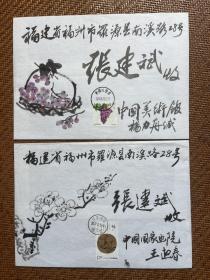 福建省福州市罗源县南溪路28号
張建斌 收
中国美術館
杨
福建省福州市罗源县南溪路28号
張建斌 收
中国国家画院
王迎春